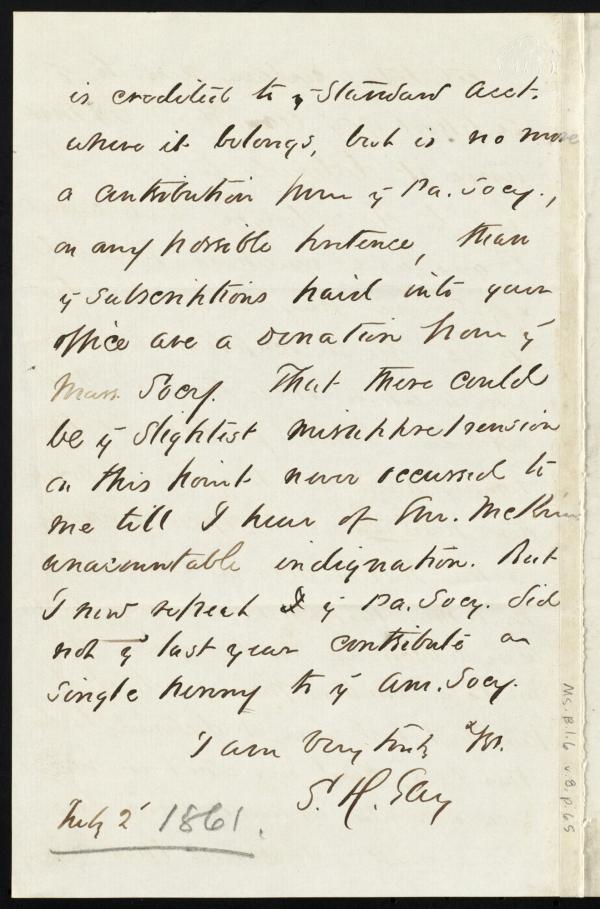 is credited to ye Standard Acct.
where it belongs, but is no more
a contribution from ye Pa. Socy.,
on any possible pretence, than
ye subscriptions paid into your
office are a donation from ye
Mass. Socy. That there could
be ye slightest misapprehension
on this point never occurred to
me till I hear of Mr. McKim
unaccountable indignation. But
I now repeat ye Pa. Socy. did
not ye last year contribute a
single penny to ye Am. Socy.
I am very truly Yrs.
S. H. Gay
July 2 1861.
MS. B.1.6 v.8, p.65